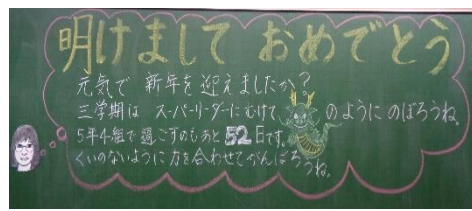 明けまして おめでとう
元気で 新年を迎えましたか?
三学期は スーパーリーダーにむけて のように のぼろうね。
5年4組で過ごすのもあと52日です。
くいのないように力を合わせてがんばろうね。